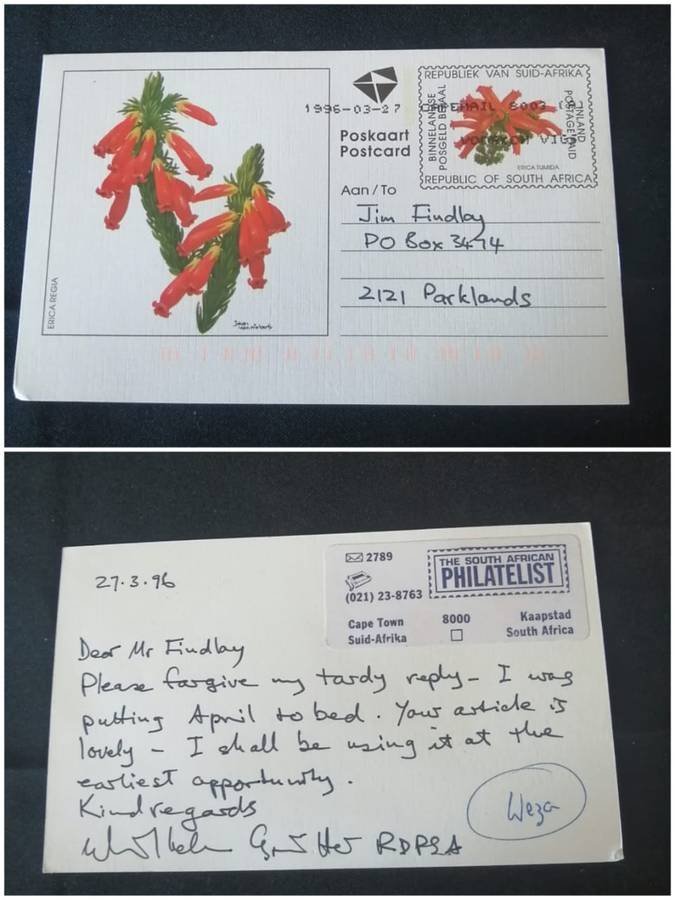 1996-03-27 CAPEMAIL 8002 (A)
REPUBLIEK VAN SUID-AFRIKA
BINNELANDSE
POSGELD BETAAL
INLAND
POSTAGE PAID
ERICA TUMIDA
REPUBLIC OF SOUTH AFRICA
Poskaart
Postcard
Aan / To
Jim Findlay
PO Box 3474
2121 Parklands
ERICA REGIA
27.3.96
2789
(021) 23-8763
THE SOUTH AFRICAN
PHILATELIST
Cape Town 8000 Kaapstad
Suid-Afrika South Africa
Dear Mr Findlay
Please forgive my tardy reply - I was
putting April to bed. Your article is
lovely - I shall be using it at the
earliest opportunity.
Kind regards
RDPSA
Weza